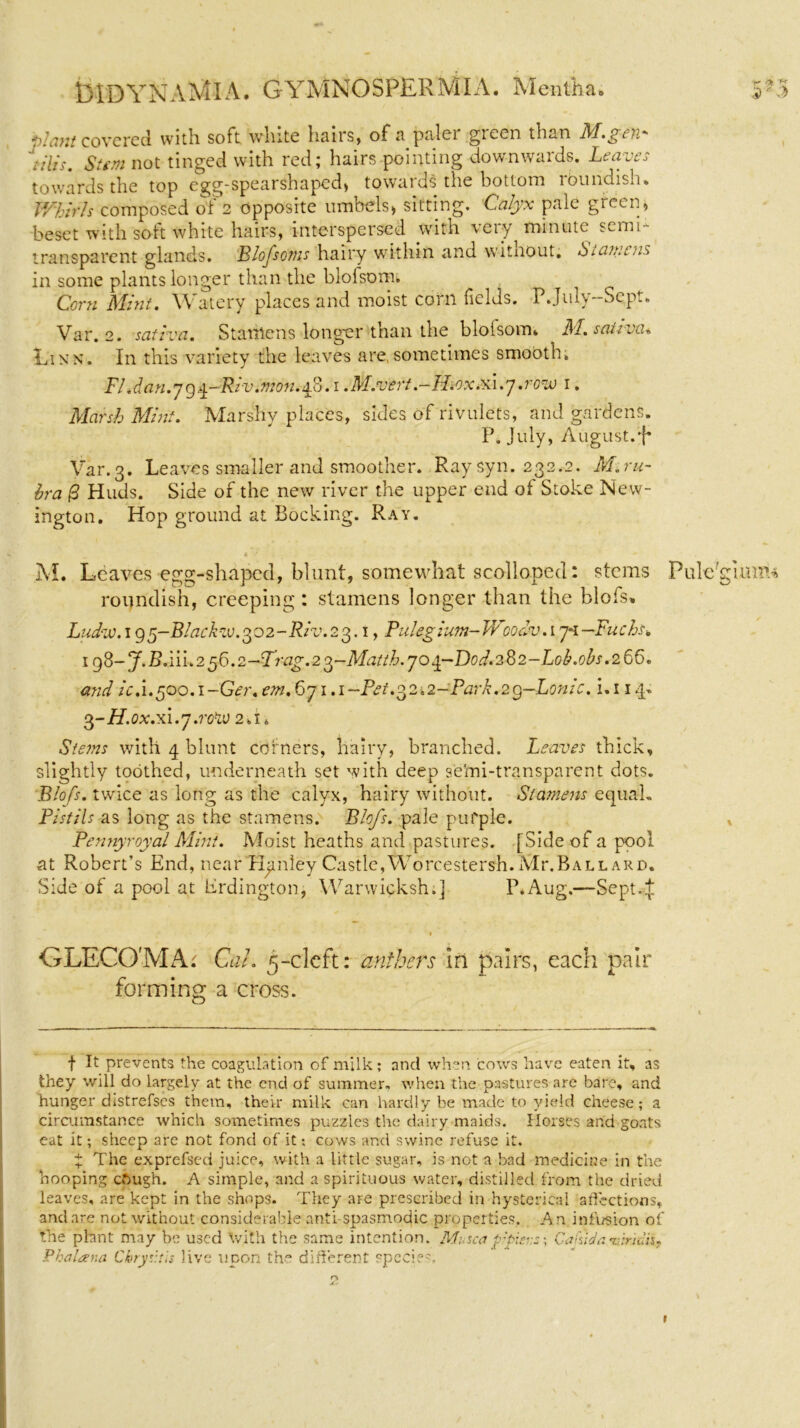 DIDYNAMIA. GYMNOSPERMIA. Mentha. 523
plant covered with soft white hairs, of a paler green than M.gen-
tilis. Stem not tinged with red; hairs pointing downwards. Leaves
towards the top egg-spearshaped, towards the bottom roundish.
Whirls composed of 2 opposite umbels, sitting. Calyx pale green,
beset with soft white hairs, interspersed with very minute semi-
transparent glands. Blofsoms hairy within and without. Stamens
in some plants longer than the blofsom.
Corn Mint. Watery places and moist corn fields. P.July-Sept.
Var. 2. sativa. Stamens longer than the blofsom. M. sativa.
Linn. In this variety the leaves are sometimes smooth.
Fl.dan.794-Riv.mon.48.1.M.vert.-H.ox.xi.7.row 1.
Marsh Mint. Marshy places, sides of rivulets, and gardens.
P. July, August.†
Var.3. Leaves smaller and smoother. Ray syn. 232.2. M. ru-
bra β Huds. Side of the new river the upper end of Stoke New-
ington. Hop ground at Bocking. Ray.
M. Leaves egg-shaped, blunt, somewhat scolloped: stems Pule'gium.
roundish, creeping: stamens longer than the blofs.
Ludw.195-Blackw.302-Riv.23.1, Pulegium-Woodv.171-Fuchs.
198-J.B.iii.256.2-Trag.23-Matth.704-Dod.282-Lob.obs.266.
and ic.i.500.1-Ger. em. 671.1-Pet.32.2-Park.29-Lonic. i.114.
3-H.ox.xi.7.row 2.1.
Stems with 4 blunt corners, hairy, branched. Leaves thick,
slightly toothed, underneath set with deep semi-transparent dots.
Blofs. twice as long as the calyx, hairy without. Stamens equal.
Pistils as long as the stamens. Blofs. pale purple.
Pennyroyal Mint. Moist heaths and pastures. [Side of a pool
at Robert's End, near Hanley Castle, Worcestersh. Mr. Ballard.
Side of a pool at Erdington, Warwicksh.] P. Aug.—Sept.‡
GLECO'MA. Cal. 5-cleft: anthers in pairs, each pair
forming a cross.
† It prevents the coagulation of milk; and when cows have eaten it, as
they will do largely at the end of summer, when the pastures are bare, and
hunger distrefses them, their milk can hardly be made to yield cheese; a
circumstance which sometimes puzzles the dairy maids. Horses and goats
eat it; sheep are not fond of it; cows and swine refuse it.
‡ The exprefsed juice, with a little sugar, is not a bad medicine in the
hooping cough. A simple, and a spirituous water, distilled from the dried
leaves, are kept in the shops. They are prescribed in hysterical affections,
and are not without considerable anti-spasmodic properties. An infusion of
the plant may be used with the same intention. Musca pipiens; Cafsida viridis,
Phalæna Chrysitis live upon the different species.
2